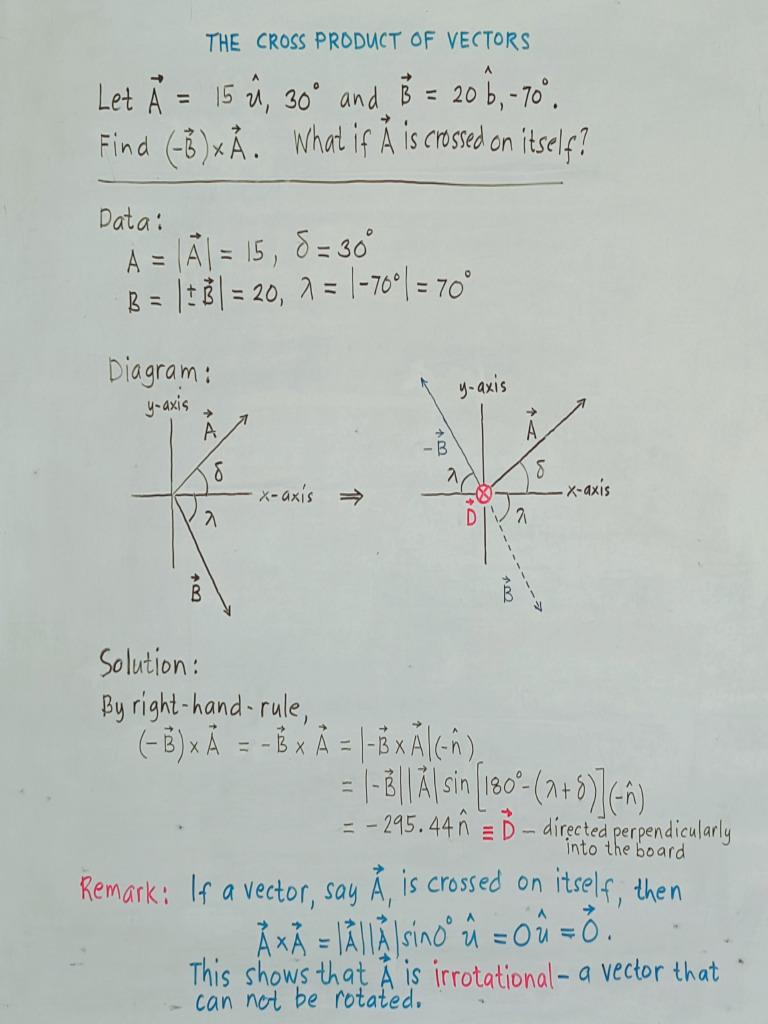 THE CROSS PRODUCT OF VECTORS
Let A⃗ = 15 û, 30° and B⃗ = 20 b̂, -70°.
Find (-B⃗) × A⃗. What if A⃗ is crossed on itself?
Data:
A = |A⃗| = 15, δ = 30°
B = |±B⃗| = 20, λ = |-70°| = 70°
Diagram:
y-axis
A⃗
δ
x-axis
λ
B⃗
⇒
y-axis
-B⃗
A⃗
λ
δ
x-axis
D⃗
λ
B⃗
Solution:
By right-hand-rule,
(-B⃗) × A⃗ = -B⃗ × A⃗ = |-B⃗ × A⃗|(-n̂)
= |-B⃗||A⃗| sin [180° - (λ + δ)](-n̂)
= -295.44 n̂ ≡ D⃗ – directed perpendicularly
into the board
Remark: If a vector, say A⃗, is crossed on itself, then
A⃗ × A⃗ = |A⃗||A⃗| sin 0° û = 0 û = 0⃗.
This shows that A⃗ is irrotational – a vector that
can not be rotated.